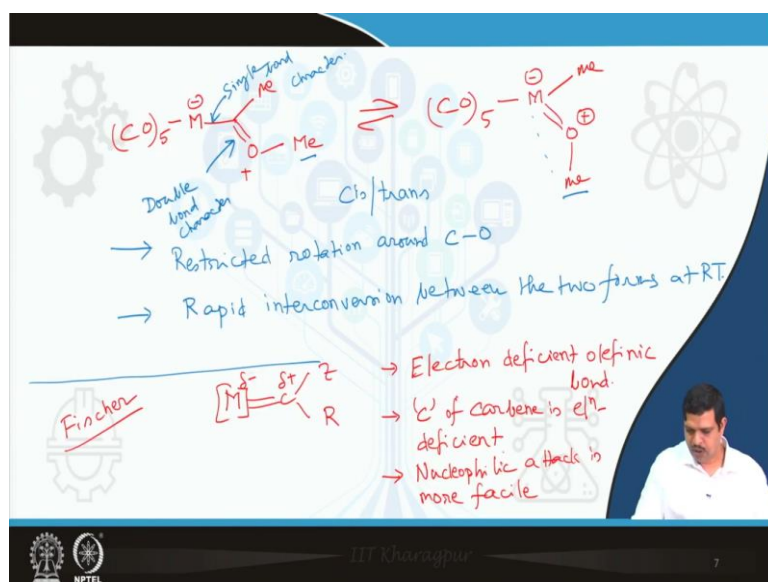 Single bond character.
(CO)5 - M⊖ - C Me
O - Me
+
⇌
(CO)5 - M⊖ me
O ⊕
me
Double bond character
Cis/trans
→ Restricted rotation around C-O
→ Rapid interconversion between the two forms at RT.
Fischer
[M]δ- = Cδ+ Z
R
→ Electron deficient olefinic bond.
→ 'C' of carbene is eln- deficient
→ Nucleophilic attack is more facile
IIT Kharagpur
NPTEL
7